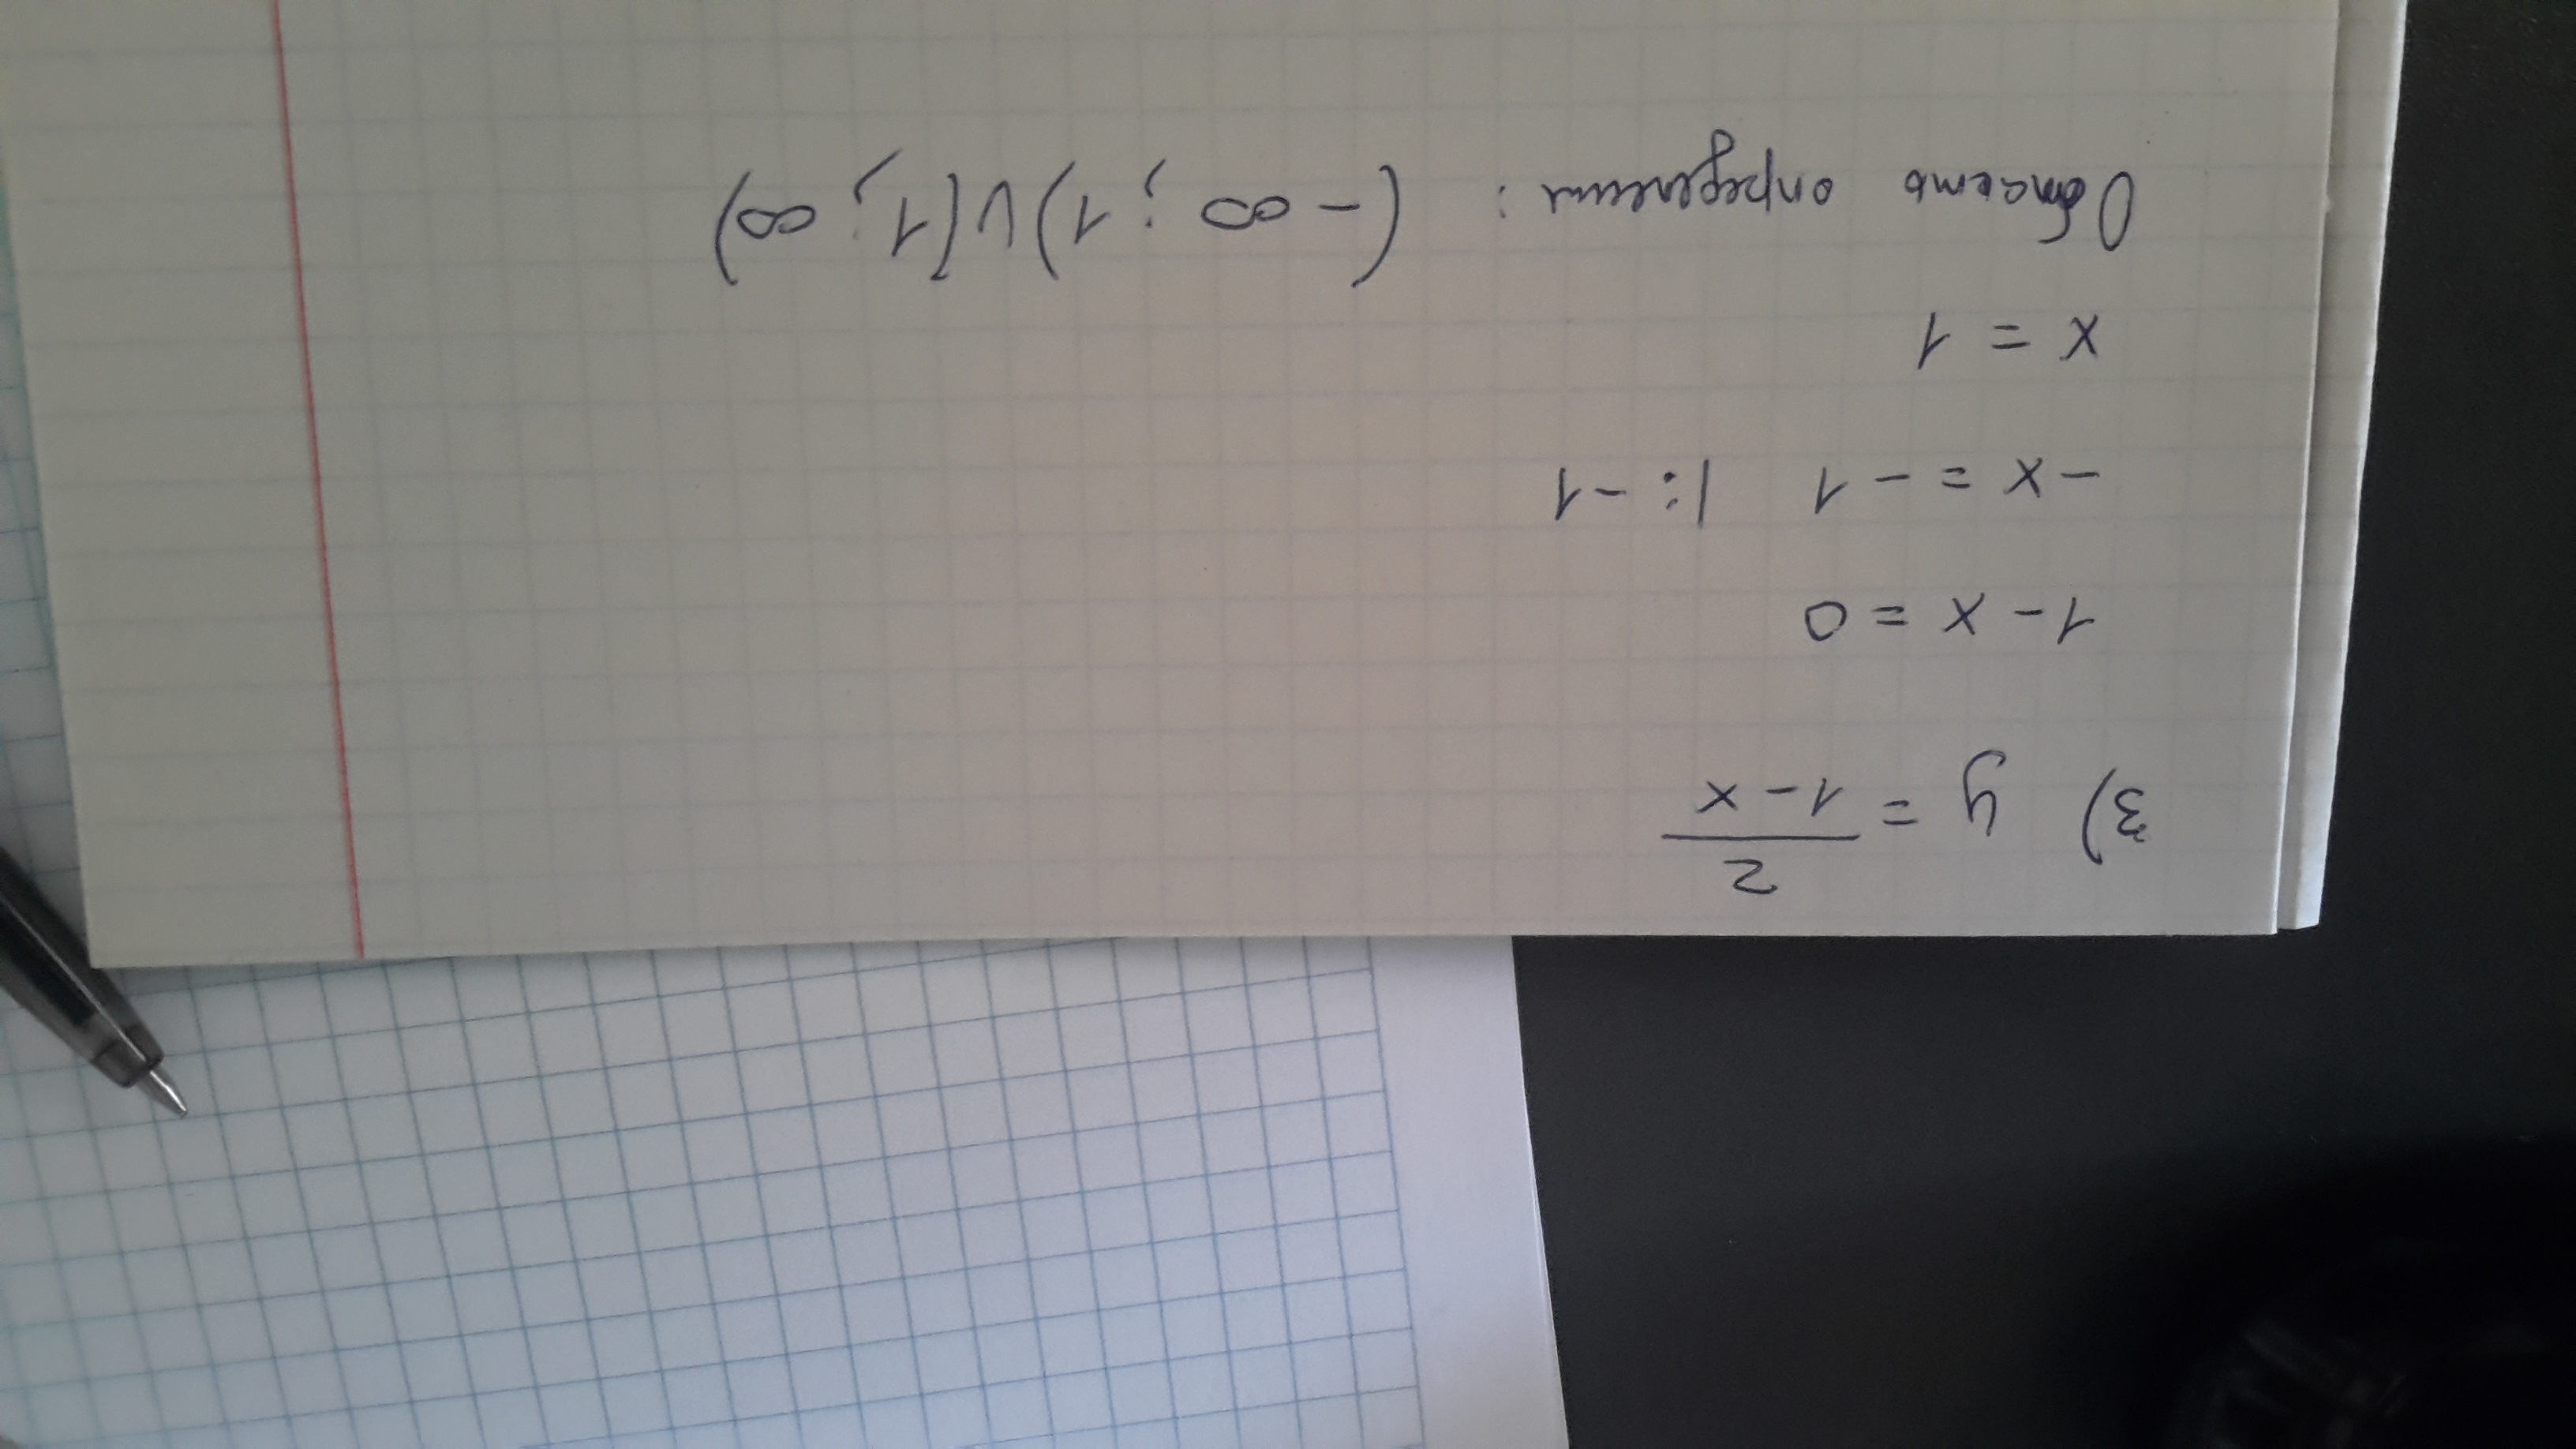 3) y = 2/(1-x)
1 - x = 0
-x = -1 |: -1
x = 1
Область определения: (-∞; 1)∪[1; ∞)